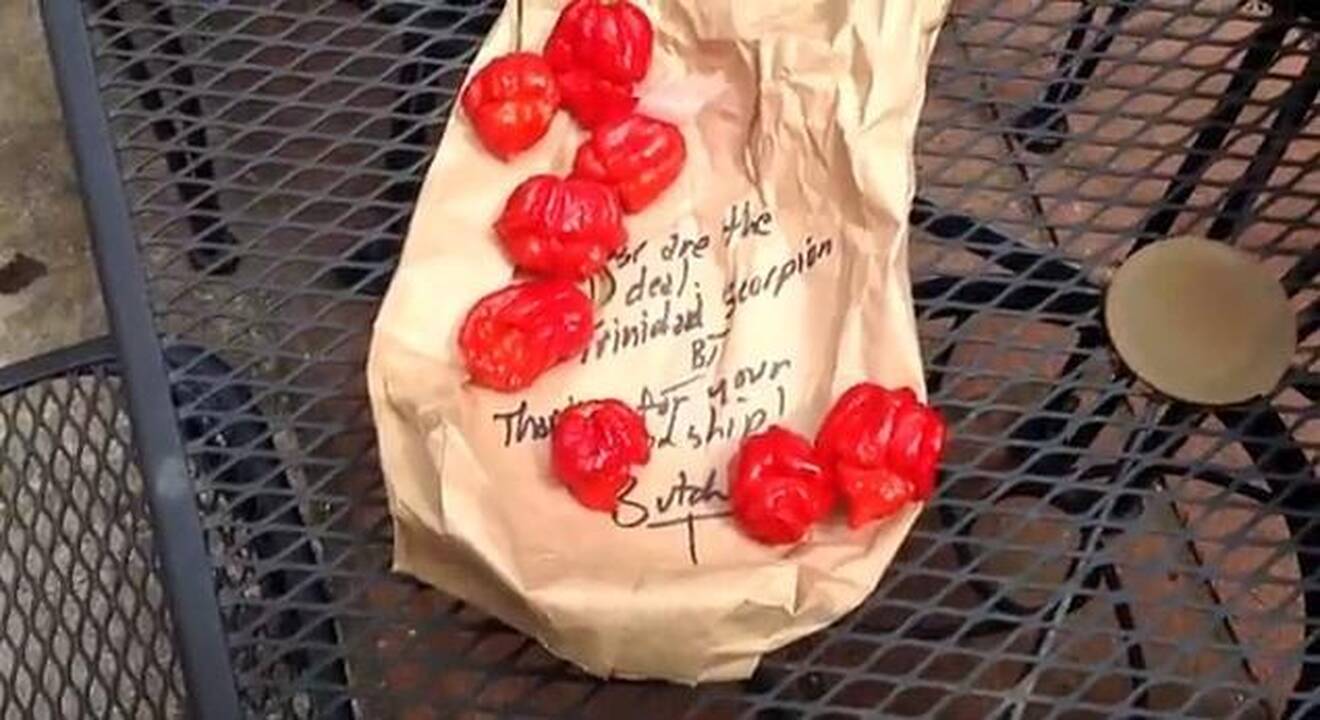 are the
deal;
Trinidad scorpion
BT
for your
ship!
Butch